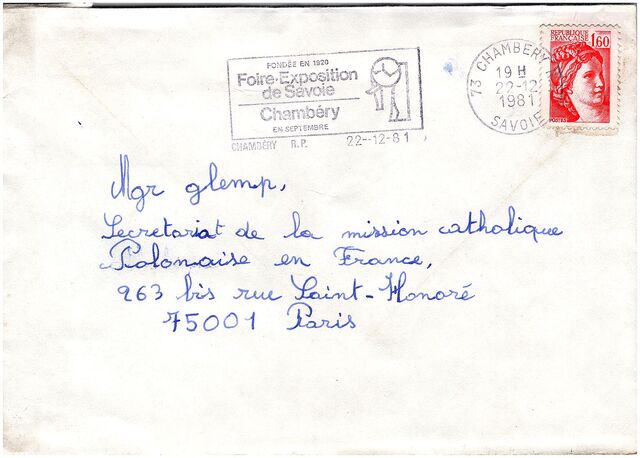 FONDÉE EN 1920
Foire-Exposition
de Savoie
Chambéry
EN SEPTEMBRE
CHAMBÉRY R.P. 22-12-81
73 CHAMBERY
19 H
22-12
1981
SAVOIE
REPUBLIQUE
FRANÇAISE
1,60
POSTES
Mgr glemp,
Secretariat de la mission catholique
Polonaise en France,
263 bis rue Saint-Honoré
75001 Paris